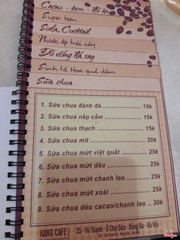 Cacao - Kem - Hồ
Super teen
Soda, Cocktail
Nước ép trái cây
Đồ uống đá xay
Sinh tố Hoa quả dầm
Sữa chua
1. Sữa chua đánh đá 15k
2. Sữa chua nếp cẩm 15k
3. Sữa chua thạch 15k
4. Sữa chua mít 20k
5. Sữa chua mứt việt quất 25k
6. Sữa chua mứt dâu 25k
7. Sữa chua mứt chanh leo 25k
8. Sữa chua mứt xoài 25k
9. Sữa chua dẻo cacao/chanh leo 30k
KANG CAFE 35 - Vũ Thạnh - Ô Chợ Dừa - Đống Đa - Hà Nội